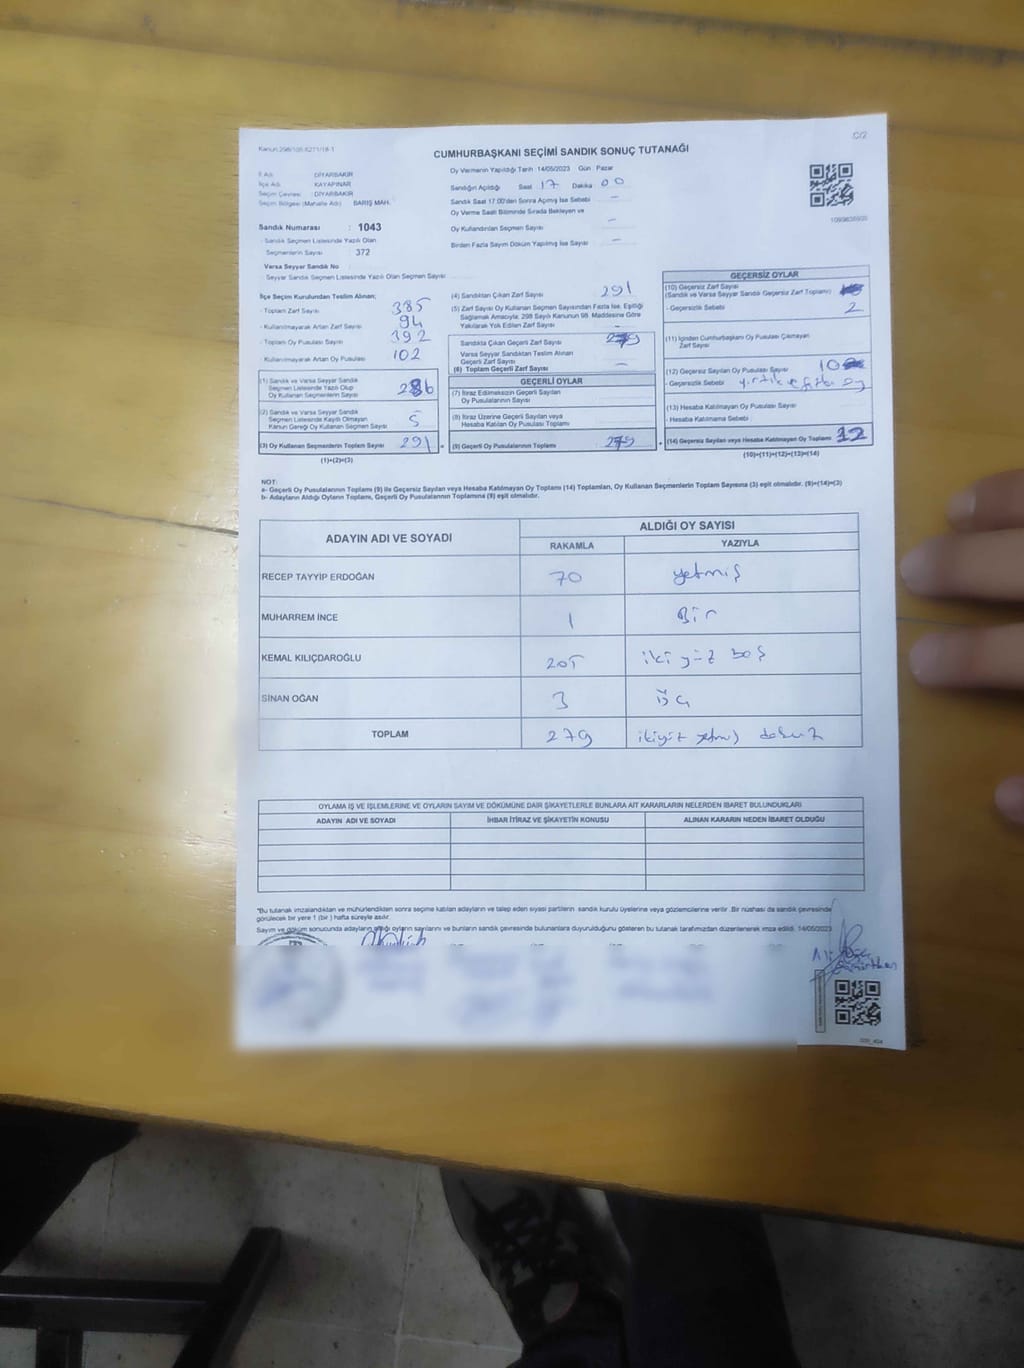 C/2
Kanun 298/105
CUMHURBAŞKANI SEÇİMİ SANDIK SONUÇ TUTANAĞI
İl Adı : DİYARBAKIR
İlçe Adı : KAYAPINAR
Seçim Çevresi : DİYARBAKIR
Seçim Bölgesi (Mahalle Adı) BARIŞ MAH.
Sandık Numarası : 1043
Sandık Seçmen Listesinde Yazılı Olan
Seçmenlerin Sayısı : 372
Varsa Seyyar Sandık No
Seyyar Sandık Seçmen Listesinde Yazılı Olan Seçmen Sayısı
Oy Vermenin Yapıldığı Tarih :14/05/2023 Gün : Pazar
Sandığın Açıldığı Saat 17 Dakika 00
Sandık Saat 17.00'den Sonra Açılmış İse Sebebi —
Oy Verme Saati Bitiminde Sırada Bekleyen ve
Oy Kullandırılan Seçmen Sayısı —
Birden Fazla Sayım Döküm Yapılmış İse Sayısı —
İlçe Seçim Kurulundan Teslim Alınan;
- Toplam Zarf Sayısı 385
- Kullanılmayarak Artan Zarf Sayısı 94
- Toplam Oy Pusulası Sayısı 392
- Kullanılmayarak Artan Oy Pusulası 102
(1) Sandık ve Varsa Seyyar Sandık
Seçmen Listesinde Yazılı Olup
Oy Kullanan Seçmenlerin Sayısı 286
(2) Sandık ve Varsa Seyyar Sandık
Seçmen Listesinde Kayıtlı Olmayan
Kanun Gereği Oy Kullanan Seçmen Sayısı 5
(3) Oy Kullanan Seçmenlerin Toplam Sayısı 291
(1)+(2)=(3)
(4) Sandıktan Çıkan Zarf Sayısı 291
(5) Zarf Sayısı Oy Kullanan Seçmen Sayısından Fazla İse, Eşitliği
Sağlamak Amacıyla; 298 Sayılı Kanunun 98. Maddesine Göre
Yakılarak Yok Edilen Zarf Sayısı —
Sandıkta Çıkan Geçerli Zarf Sayısı 279
Varsa Seyyar Sandıktan Teslim Alınan
Geçerli Zarf Sayısı
(6) Toplam Geçerli Zarf Sayısı —
GEÇERLİ OYLAR
(7) İtiraz Edilmeksizin Geçerli Sayılan
Oy Pusulasının Sayısı
(8) İtiraz Üzerine Geçerli Sayılan veya
Hesaba Katılan Oy Pusulası Toplamı
(9) Geçerli Oy Pusulalarının Toplamı 279
GEÇERSİZ OYLAR
(10) Geçersiz Zarf Sayısı
(Sandık ve Varsa Seyyar Sandık Geçersiz Zarf Toplamı)
- Geçersizlik Sebebi 2
(11) İçinden Cumhurbaşkanı Oy Pusulası Çıkmayan
Zarf Sayısı
(12) Geçersiz Sayılan Oy Pusulası Sayısı 10
- Geçersizlik Sebebi yırtık ve fazla oy
(13) Hesaba Katılmayan Oy Pusulası Sayısı
- Hesaba Katılmama Sebebi
(14) Geçersiz Sayılan veya Hesaba Katılmayan Oy Toplamı 12
(10)+(11)+(12)+(13)=(14)
NOT:
a- Geçerli Oy Pusulalarının Toplamı (9) ile Geçersiz Sayılan veya Hesaba Katılmayan Oy Toplamı (14) Toplamları, Oy Kullanan Seçmenlerin Toplam Sayısına (3) eşit olmalıdır. (9)+(14)=(3)
b- Adayların Aldığı Oyların Toplamı, Geçerli Oy Pusulalarının Toplamına (9) eşit olmalıdır.
ADAYIN ADI VE SOYADI
ALDIĞI OY SAYISI
RAKAMLA YAZIYLA
RECEP TAYYİP ERDOĞAN 70 yetmiş
MUHARREM İNCE 1 Bir
KEMAL KILIÇDAROĞLU 205 iki yüz beş
SİNAN OĞAN 3 üç
TOPLAM 279 ikiyüz yetmiş dokuz
OYLAMA İŞ VE İŞLEMLERİNE VE OYLARIN SAYIM VE DÖKÜMÜNE DAİR ŞİKAYETLERLE BUNLARA AİT KARARLARIN NELERDEN İBARET BULUNDUKLARI
ADAYIN ADI VE SOYADI İHBAR İTİRAZ VE ŞİKAYETİN KONUSU ALINAN KARARIN NEDEN İBARET OLDUĞU
*Bu tutanak imzalandıktan ve mühürlendikten sonra seçime katılan adayların ve talep eden siyasi partilerin sandık kurulu üyelerine veya gözlemcilerine verilir. Bir nüshası da sandık çevresinde
görülecek bir yere 1 (bir) hafta süreyle asılır.
Sayım ve döküm sonucunda adayların aldığı oyların sayılarını ve bunların sandık çevresinde bulunanlara duyurulduğunu gösteren bu tutanak tarafımızdan düzenlenerek imza edildi. 14/05/2023